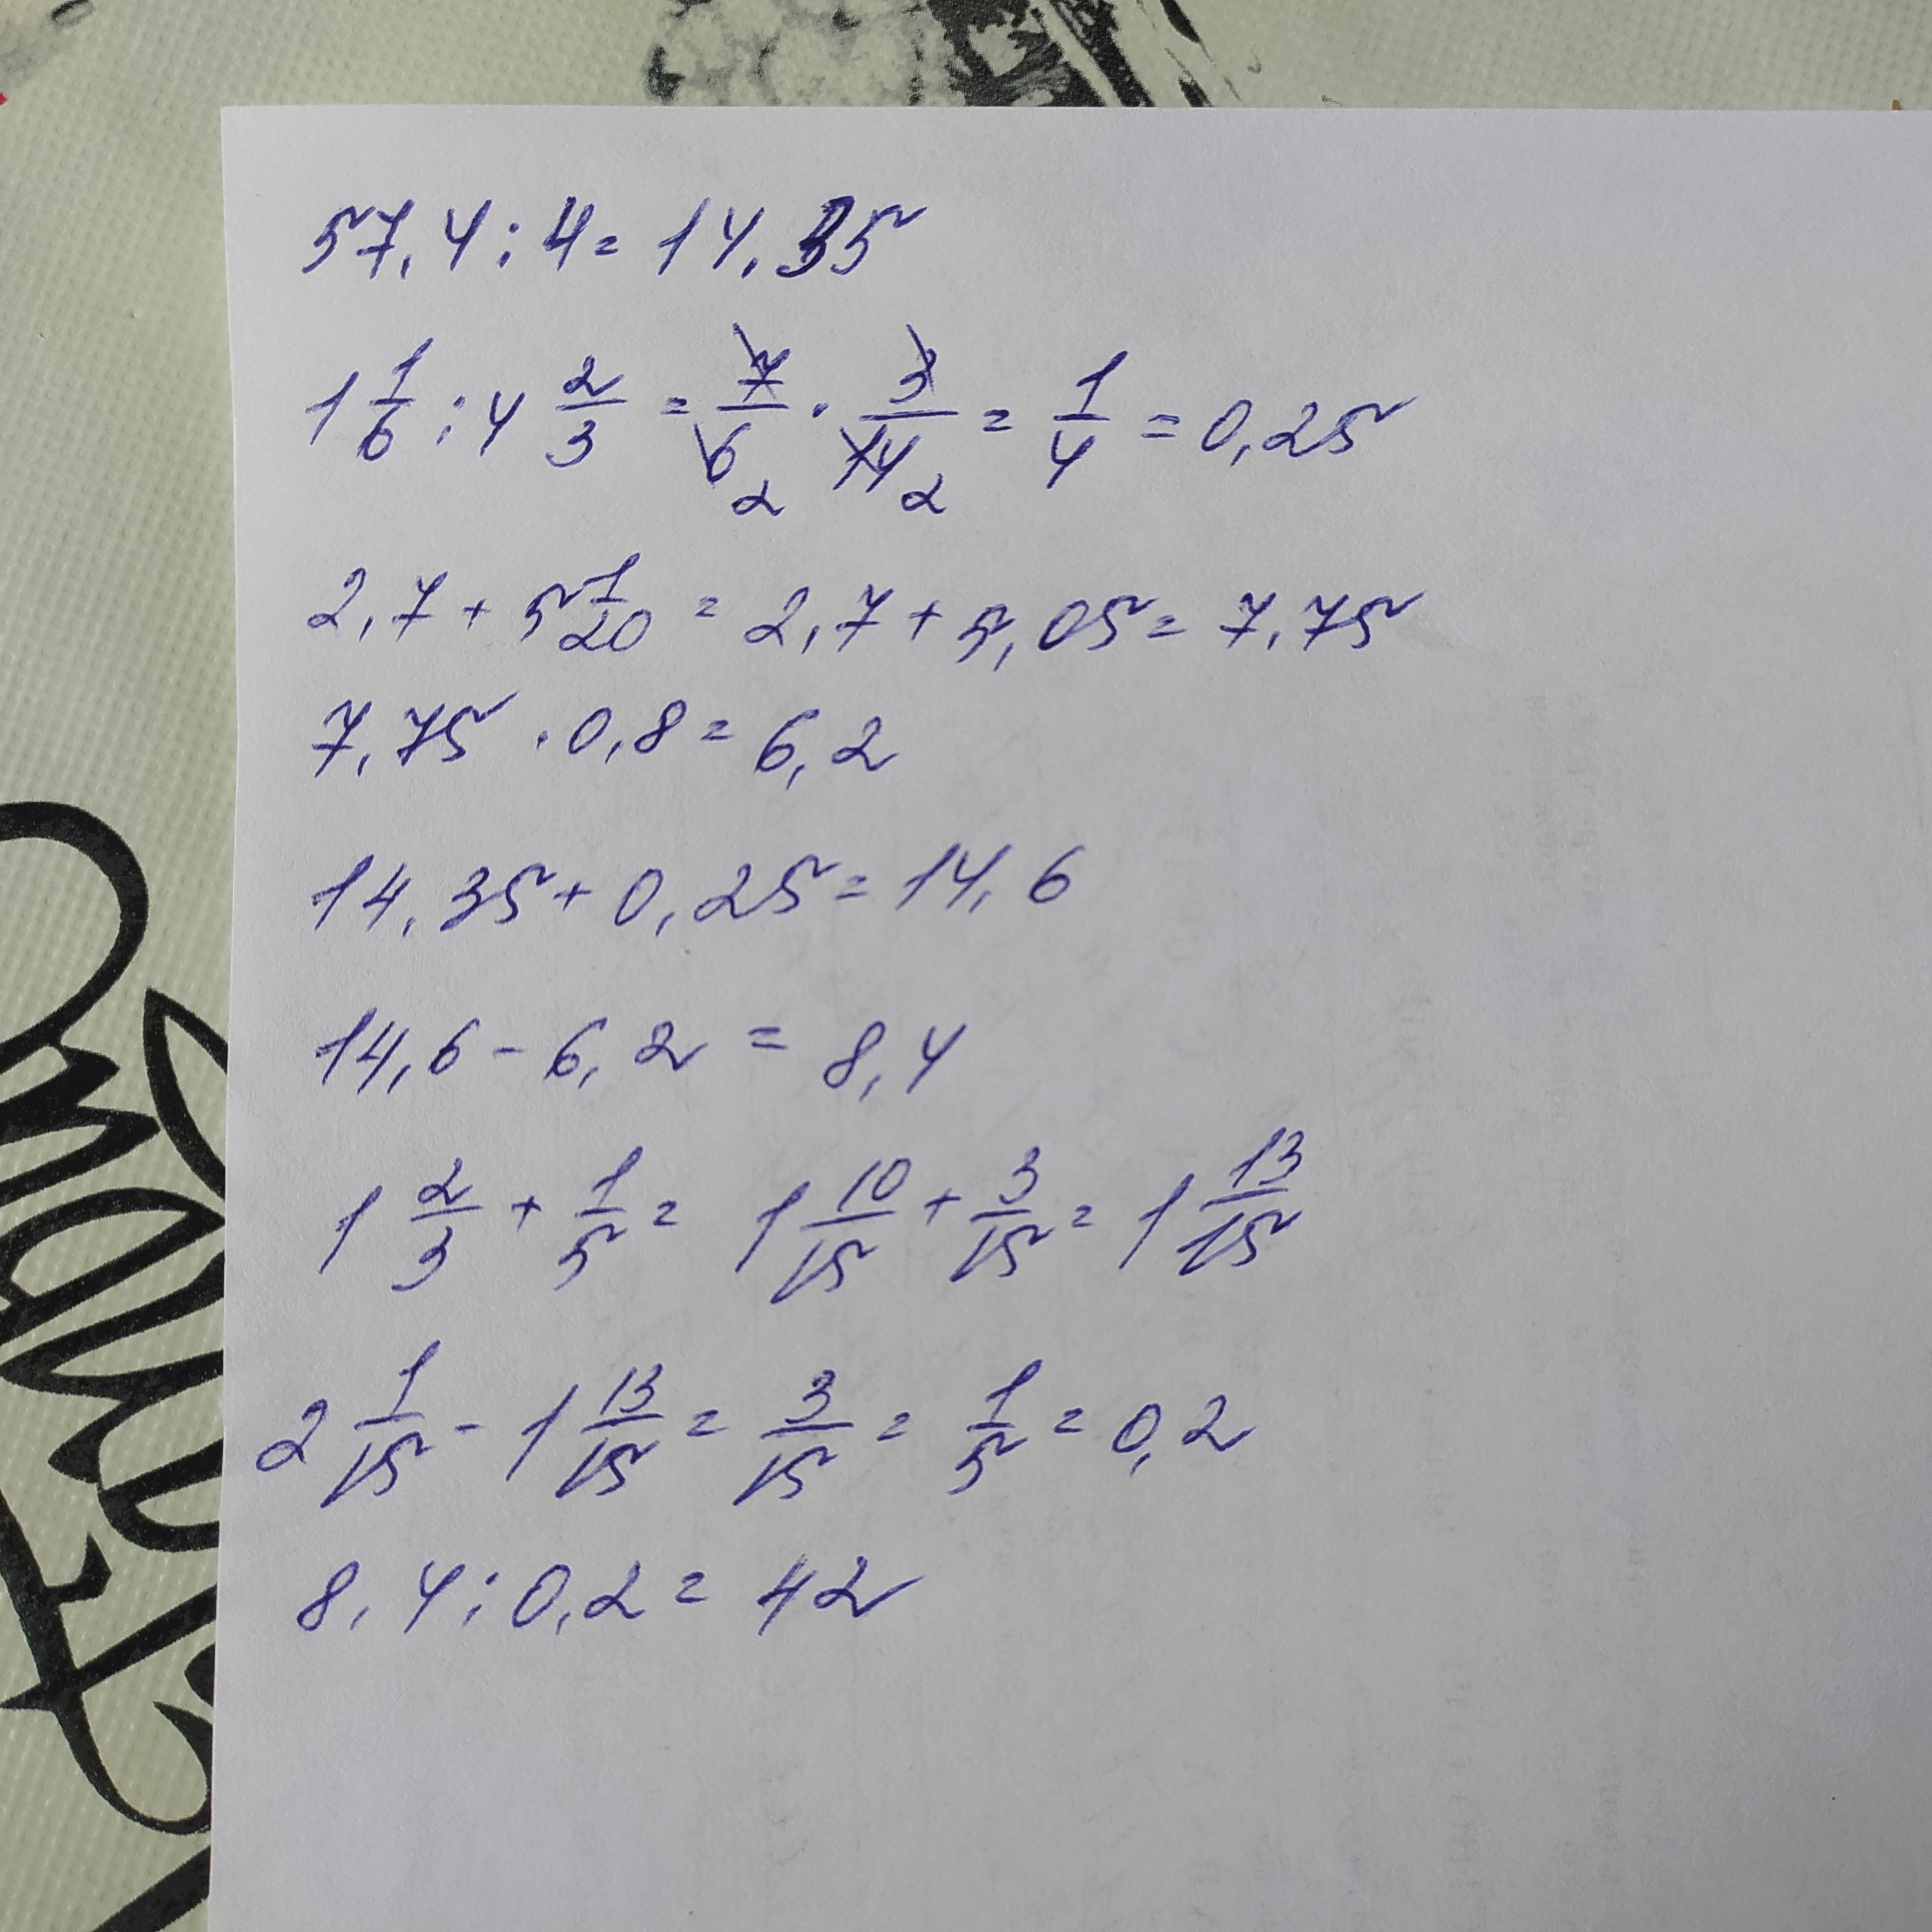 57,4 : 4 = 14,35
1 1/6 : 4 2/3 = 7/6 2 · 3/14 2 = 1/4 = 0,25
2,7 + 5 1/20 = 2,7 + 5,05 = 7,75
7,75 · 0,8 = 6,2
14,35 + 0,25 = 14,6
14,6 - 6,2 = 8,4
1 2/3 + 1/5 = 1 10/15 + 3/15 = 1 13/15
2 1/15 - 1 13/15 = 3/15 = 1/5 = 0,2
8,4 : 0,2 = 42